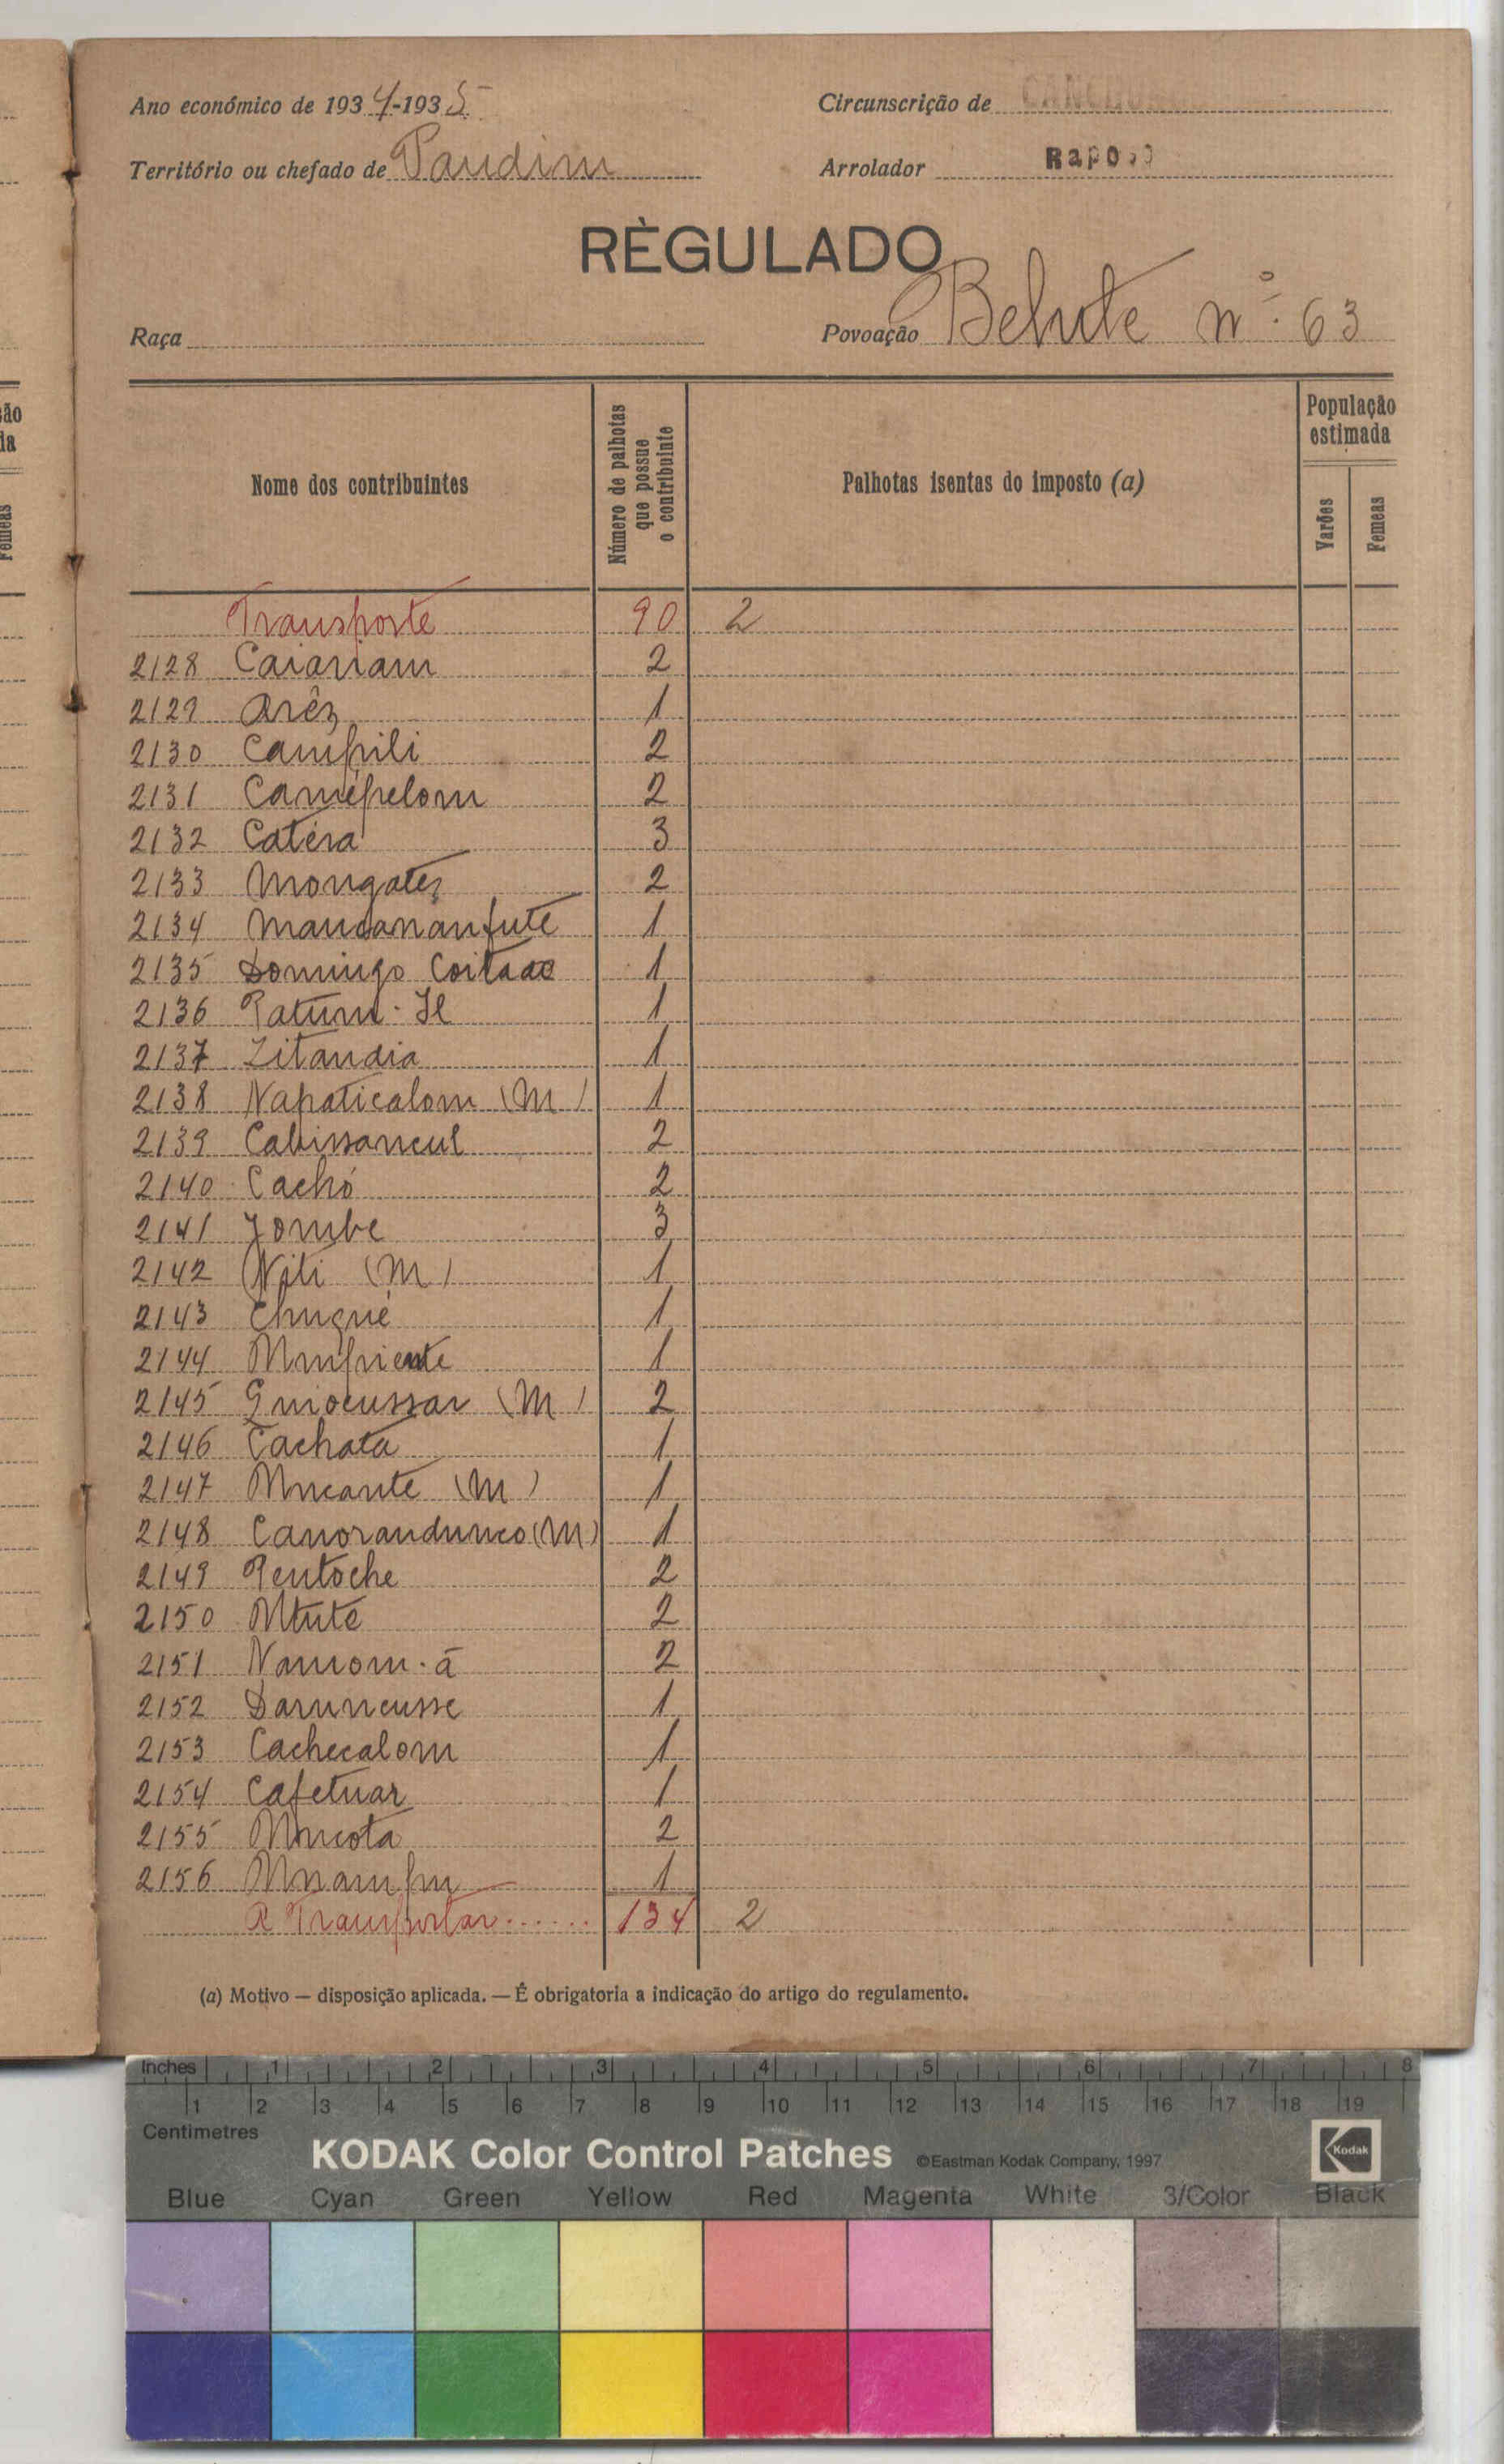 Ano económico de 1934-1935
Circunscrição de
Território ou chefado de Pandim
Arrolador Raposo
RÈGULADO
Raça
Povoação Behute nº 63
Nome dos contribuintes
Número de palhotas que possue o contribuinte
Palhotas isentas do imposto (a)
População estimada
Varões
Femeas
Transporte 90 2
2128 Caianiam 2
2129 Arêz 1
2130 Campili 2
2131 Camépelom 2
2132 Catéra 3
2133 Mongatez 2
2134 Mandananfute 1
2135 Domingo 1
2136 Patum. Il 1
2137 Litandia 1
2138 Napaticalom (M) 1
2139 Cabissancul 2
2140 Cachó 2
2141 Jombe 3
2142 Niti (M) 1
2143 Chugué 1
2144 Mmpiente 1
2145 Guiocussar (M) 2
2146 Cachata 1
2147 Mncante (M) 1
2148 Canorandunco (M) 1
2149 Pentoche 2
2150 Ntute 2
2151 Namom. ā 2
2152 Daruncusse 1
2153 Cachecalom 1
2154 Cafetuar 1
2155 Mncota 2
2156 Mnampu 1
A Transportar...... 134 2
(a) Motivo — disposição aplicada. — É obrigatoria a indicação do artigo do regulamento.
ão
la
Femeas
Inches 1 2 3 4 5 6 7 8
1 2 3 4 5 6 7 8 9 10 11 12 13 14 15 16 17 18 19
Centimetres
KODAK Color Control Patches ©Eastman Kodak Company, 1997 Kodak
Blue Cyan Green Yellow Red Magenta White 3/Color Black